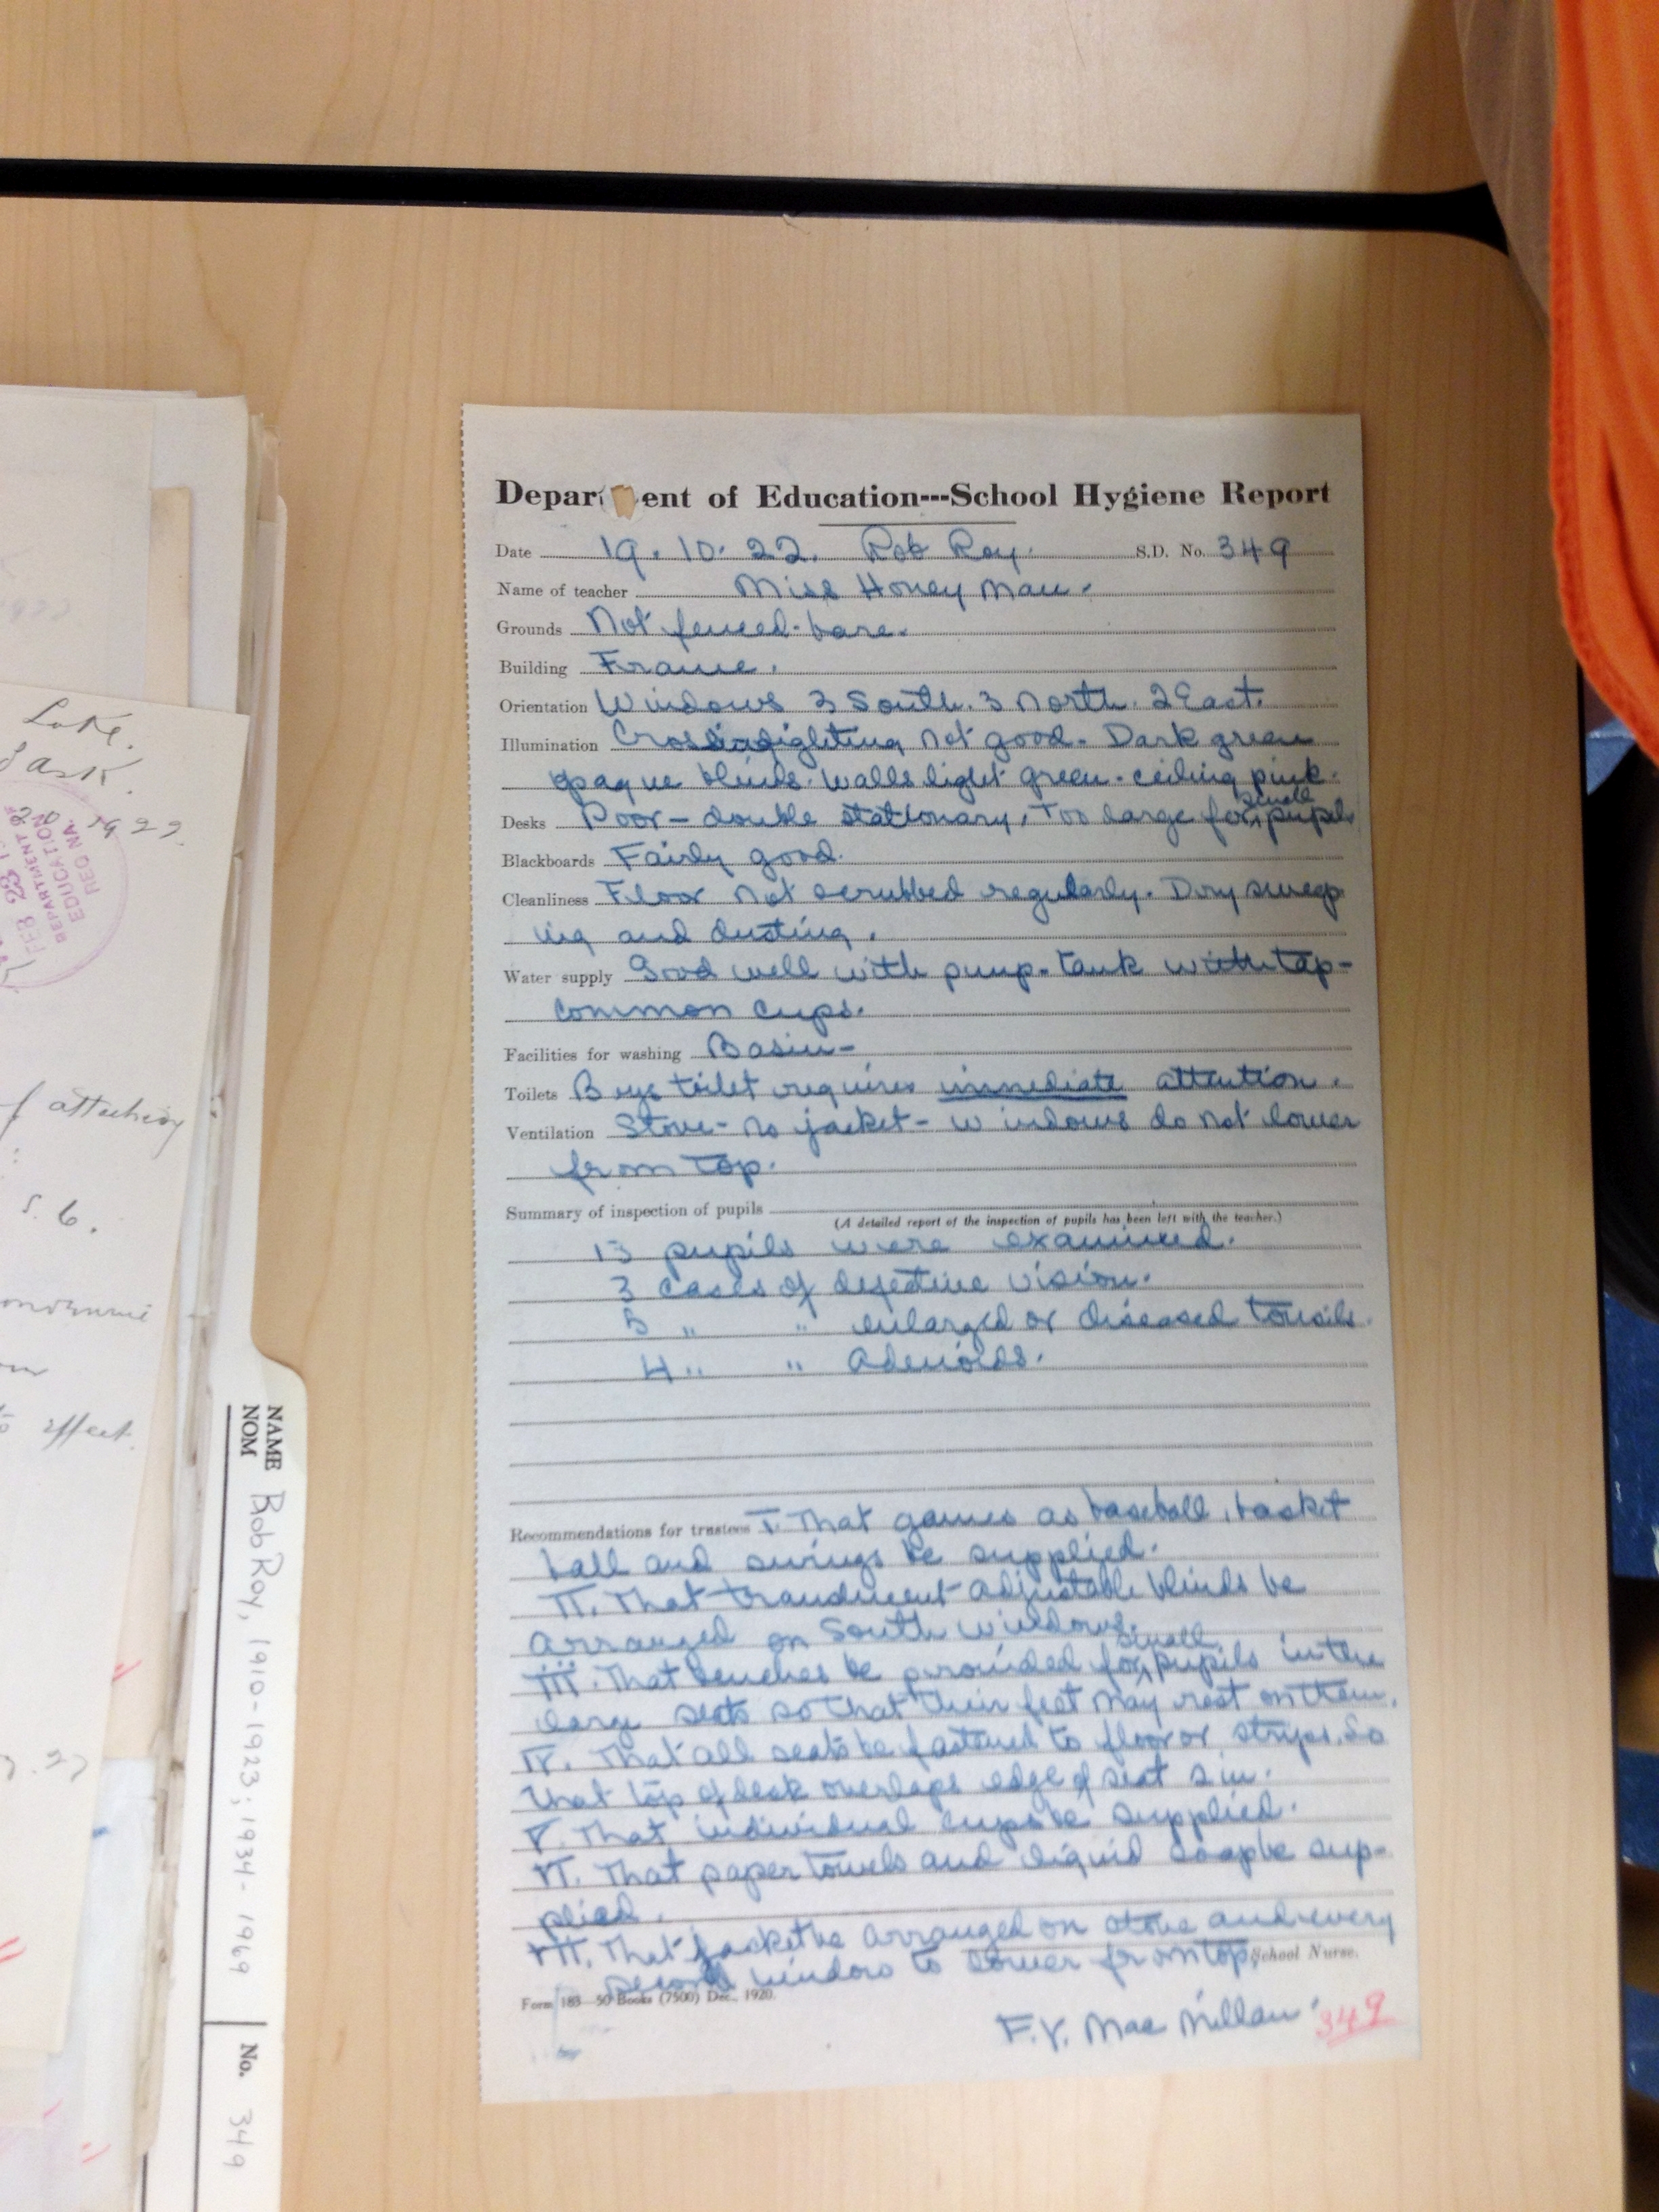 Depar ent of Education---School Hygiene Report
Date 19. 10. 22. Rob Roy. S.D. No. 349
Name of teacher Miss Honey Man.
Grounds Not fenced- bare.
Building Frame.
Orientation Windows 3 South. 3 North. 2 East.
Illumination Cross lighting not good. Dark green
opaque blinds. Walls light green - ceiling pink.
Desks Poor - double stationary, Too large for small pupils
Blackboards Fairly good.
Cleanliness Floor not scrubbed regularly. Dry sweep
ing and dusting.
Water supply Good well with pump. tank with tap-
common cups.
Facilities for washing Basin-
Toilets Boys toilet requires immediate attention.
Ventilation Stove- no jacket- windows do not lower
from top.
Summary of inspection of pupils
(A detailed report of the inspection of pupils has been left with the teacher.)
13 pupils were examined.
3 cases of defective vision.
5 " " enlarged or diseased tonsils.
4 " " Adenoids.
Recommendations for trustees I. That games as baseball, basket
ball and swings be supplied.
II. That adjustable blinds be
arranged on South windows.
III. That benches be provided for small pupils in the
large seats so that their feet may rest on them.
IV. That all seats be fastened to floor or strips. So
that top of desk overlaps edge of seat 2 in.
V. That individual cups be supplied.
VI. That paper towels and liquid soap be sup-
plied.
VII. That jacket be arranged on stove and every
second window to lower from top.
School Nurse.
Form 183—50 Books (7500) Dec., 1920.
F.V. Mac Millan 349
Lake.
Sask.
1922.
FEB 23
DEPARTMENT OF
EDUCATION
REGINA.
of attaching
S. 6.
effect.
NAME
NOM
Rob Roy, 1910-1923; 1934-1969
No. 349